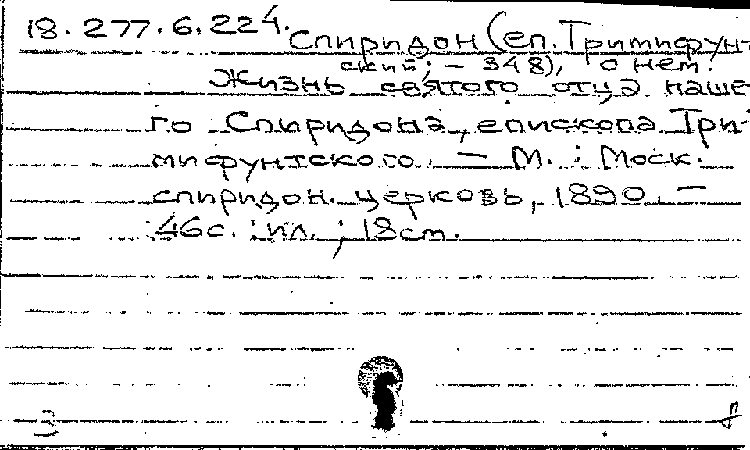 18.277.6.224.
Спиридон (еп. Тримифунт
ский; – 348), о нем.
Жизнь святого отца наше-
го Спиридона, епископа Три-
мифунтского. – М. : Моск.
спиридон. церковь, 1890. –
46с. : ил. ; 18см.
З